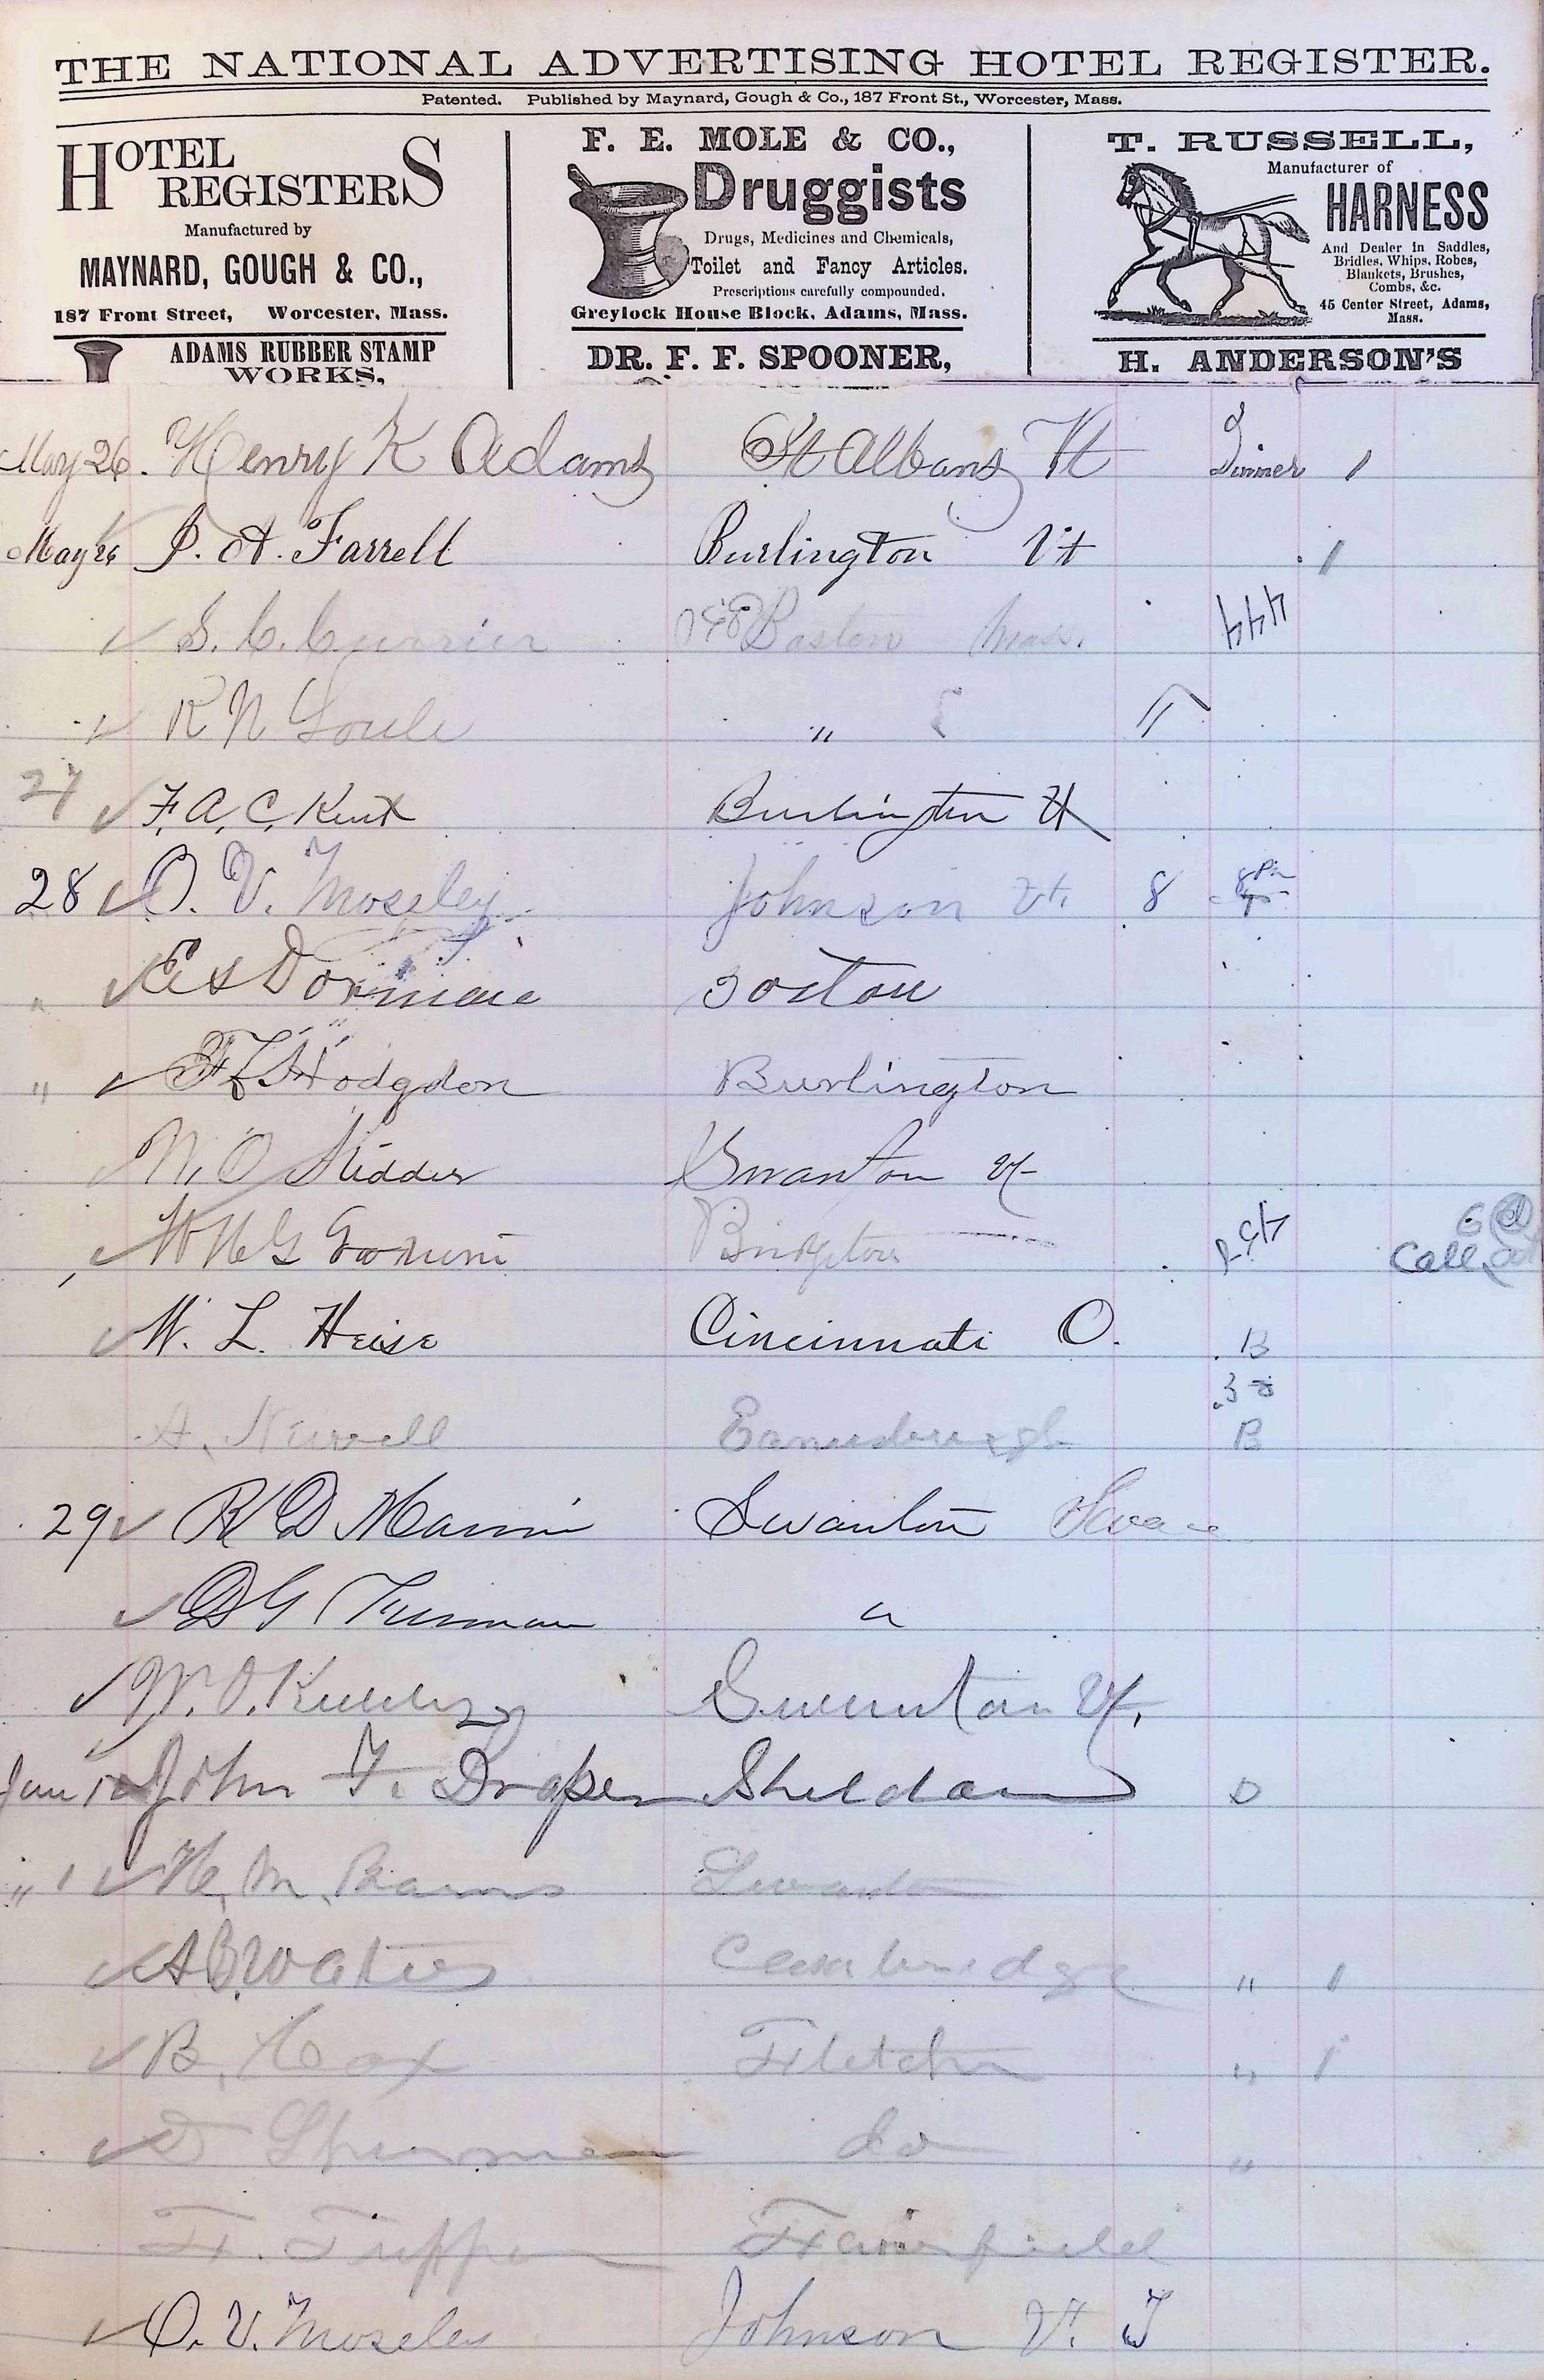 THE NATIONAL ADVERTISING HOTEL REGISTER.
Patented. Published by Maynard, Gough & Co., 187 Front St., Worcester, Mass.
HOTEL
REGISTERS
Manufactured by
MAYNARD, GOUGH & CO.,
187 Front Street, Worcester, Mass.
ADAMS RUBBER STAMP
WORKS,
F. E. MOLE & CO.,
Druggists
Drugs, Medicines and Chemicals,
Toilet and Fancy Articles.
Prescriptions carefully compounded.
Greylock House Block, Adams, Mass.
DR. F. F. SPOONER,
T. RUSSELL,
Manufacturer of
HARNESS
And Dealer in Saddles,
Bridles, Whips, Robes,
Blankets, Brushes,
Combs, &c.
45 Center Street, Adams,
Mass.
H. ANDERSON'S
May 26. Henry K Adams St Albans Vt Dinner 1
May 26 J. A. Farrell Burlington Vt 1
S. C. Currier Boston Mass.
R N Soule "
27 F. A. C. Kent Burlington Vt
28 O. V. Moseley Johnson Vt. 8
" E S Boston
" Hodgdon Burlington
W. O Kidder Swanton Vt
W H G Call
W. L. Heise Cincinnati O. B
A. Newell B
29 R D Marvin Swanton
D G Furman "
W. O. Swanton Vt.
June 1 John F. Draper Sheldon D
" 1 H. M. Barns Swanton
A B Waters Cambridge " 1
B. Cox Fletcher " 1
D Shurman do "
F. Fairfield
O. V. Moseley Johnson V. T